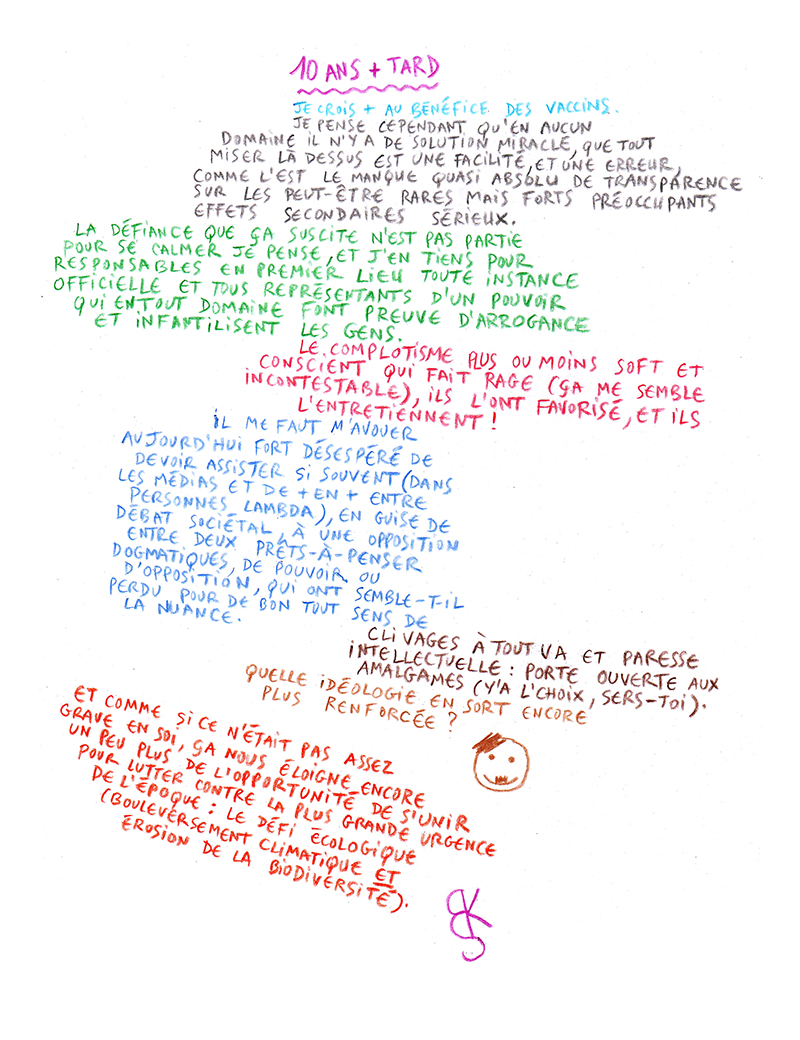 10 ANS + TARD
JE CROIS + AU BÉNÉFICE DES VACCINS.
JE PENSE CEPENDANT QU'EN AUCUN
DOMAINE IL N'Y A DE SOLUTION MIRACLE, QUE TOUT
MISER LÀ DESSUS EST UNE FACILITÉ, ET UNE ERREUR,
COMME L'EST LE MANQUE QUASI ABSOLU DE TRANSPARENCE
SUR LES PEUT-ÊTRE RARES MAIS FORTS PRÉOCCUPANTS
EFFETS SECONDAIRES SÉRIEUX.
LA DÉFIANCE QUE ÇA SUSCITE N'EST PAS PARTIE
POUR SE CALMER JE PENSE, ET J'EN TIENS POUR
RESPONSABLES EN PREMIER LIEU TOUTE INSTANCE
OFFICIELLE ET TOUS REPRÉSENTANTS D'UN POUVOIR
QUI EN TOUT DOMAINE FONT PREUVE D'ARROGANCE
ET INFANTILISENT LES GENS.
LE COMPLOTISME PLUS OU MOINS SOFT ET
CONSCIENT QUI FAIT RAGE (ÇA ME SEMBLE
INCONTESTABLE), ILS L'ONT FAVORISÉ, ET ILS
L'ENTRETIENNENT !
IL ME FAUT M'AVOUER
AUJOURD'HUI FORT DÉSESPÉRÉ DE
DEVOIR ASSISTER SI SOUVENT (DANS
LES MÉDIAS ET DE + EN + ENTRE
PERSONNES LAMBDA), EN GUISE DE
DÉBAT SOCIÉTAL, À UNE OPPOSITION
ENTRE DEUX PRÊTS-À-PENSER
DOGMATIQUES, DE POUVOIR OU
D'OPPOSITION, QUI ONT SEMBLE-T-IL
PERDU POUR DE BON TOUT SENS DE
LA NUANCE.
CLIVAGES À TOUT VA ET PARESSE
INTELLECTUELLE : PORTE OUVERTE AUX
AMALGAMES (Y'A L'CHOIX, SERS-TOI).
QUELLE IDÉOLOGIE EN SORT ENCORE
PLUS RENFORCÉE ?
ET COMME SI CE N'ÉTAIT PAS ASSEZ
GRAVE EN SOI, ÇA NOUS ÉLOIGNE ENCORE
UN PEU PLUS DE L'OPPORTUNITÉ DE S'UNIR
POUR LUTTER CONTRE LA PLUS GRANDE URGENCE
DE L'ÉPOQUE : LE DÉFI ÉCOLOGIQUE
(BOULEVERSEMENT CLIMATIQUE ET
ÉROSION DE LA BIODIVERSITÉ).